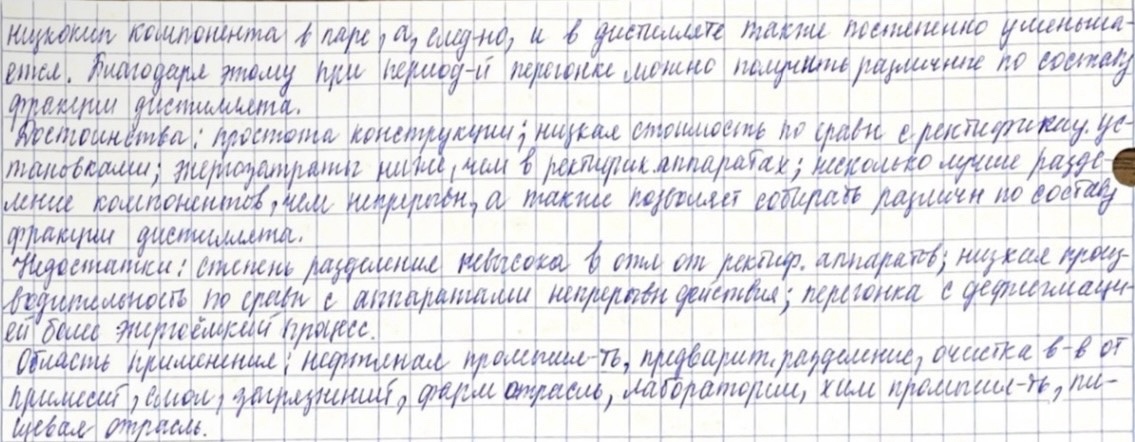 низкокип компонента в паре, а, след-но, и в дистилляте также постепенно уменьша-
ется. Благодаря этому при период-й перегонке можно получить различные по составу
фракции дистиллята.
Достоинства: простота конструкции; низкая стоимость по сравн с ректификац. ус-
тановками; энергозатраты ниже, чем в ректифик. аппаратах; несколько лучше разде-
ление компонентов, чем непрерывн, а также позволяет собирать различн по составу
фракции дистиллята.
Недостатки: степень разделения невысока в отл от ректиф. аппаратов; низкая произ-
водительность по сравн с аппаратами непрерывн действия; перегонка с дефлегмаци-
ей более энергоёмкий процесс.
Область применения: нефтяная промышл-ть, предварит. разделение, очистка в-в от
примесей, смол, загрязнений, фарм отрасль, лаборатории, хим промышл-ть, пи-
щевая отрасль.